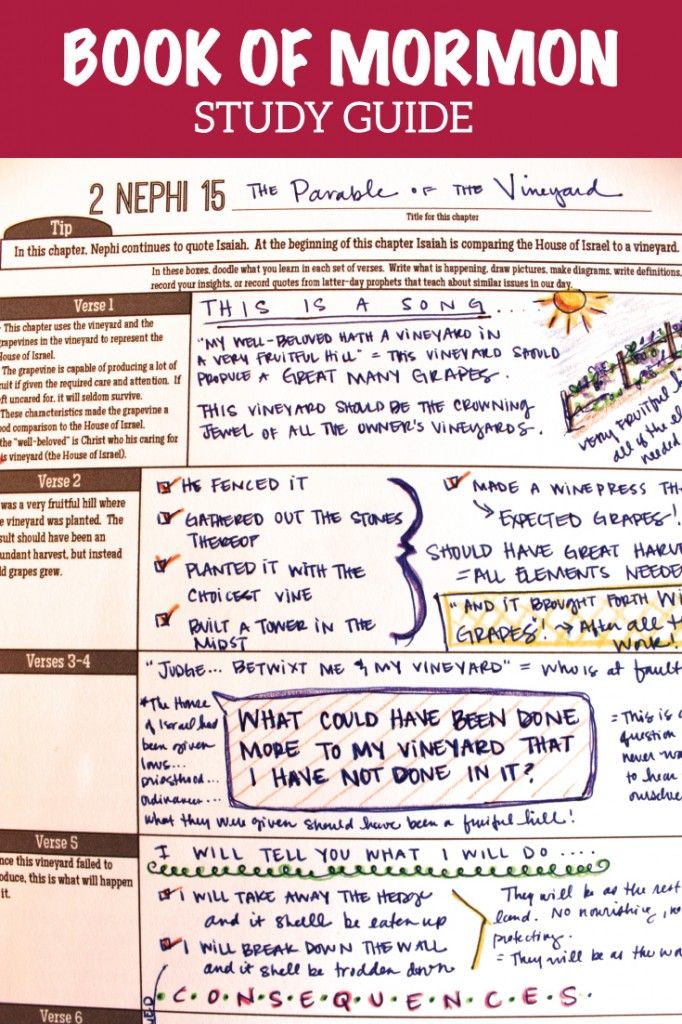 BOOK OF MORMON
STUDY GUIDE
2 NEPHI 15 The Parable of the Vineyard
Title for this chapter
Tip
In this chapter, Nephi continues to quote Isaiah. At the beginning of this chapter Isaiah is comparing the House of Israel to a vineyard.
In these boxes, doodle what you learn in each set of verses. Write what is happening, draw pictures, make diagrams, write definitions,
record your insights, or record quotes from latter-day prophets that teach about similar issues in our day.
Verse 1
This chapter uses the vineyard and the
grapevines in the vineyard to represent the
House of Israel.
The grapevine is capable of producing a lot of
uit if given the required care and attention. If
ft uncared for, it will seldom survive.
These characteristics made the grapevine a
od comparison to the House of Israel.
the "well-beloved" is Christ who his caring for
is vineyard (the House of Israel).
THIS IS A SONG....
"MY WELL-BELOVED HATH A VINEYARD IN
A VERY FRUITFUL HILL" = THIS VINEYARD SHOULD
PRODUCE A GREAT MANY GRAPES.
THIS VINEYARD SHOULD BE THE CROWNING
JEWEL OF ALL THE OWNER'S VINEYARDS.
VERY FRUITFUL
all of the el
needed
Verse 2
was a very fruitful hill where
e vineyard was planted. The
sult should have been an
undant harvest, but instead
ld grapes grew.
HE FENCED IT
GATHERED OUT THE STONES
THEREOF
PLANTED IT WITH THE
CHOICEST VINE
BUILT A TOWER IN THE
MIDST
MADE A WINEPRESS TH
EXPECTED GRAPES!
SHOULD HAVE GREAT HARV
= ALL ELEMENTS NEEDE
"AND IT BROUGHT FORTH WI
GRAPES"! → After all t
work!
Verses 3-4
"JUDGE... BETWIXT ME & MY VINEYARD" = Who is at fault
*The House
of Israel had
been given
laws...
priesthood...
ordinances...
what they were given should have been a fruitful hill!
WHAT COULD HAVE BEEN DONE
MORE TO MY VINEYARD THAT
I HAVE NOT DONE IN IT?
= This is a
question
never wa
to hear
ourselve
Verse 5
nce this vineyard failed to
oduce, this is what will happen
it.
I WILL TELL YOU WHAT I WILL DO....
I WILL TAKE AWAY THE HEDGE
and it shall be eaten up
I WILL BREAK DOWN THE WALL
and it shall be trodden down
They will be as the rest
land. No nourishing, no
protecting.
= They will be as the wo
C.O.N.S.E.Q.U.E.N.C.E.S.
Verse 6